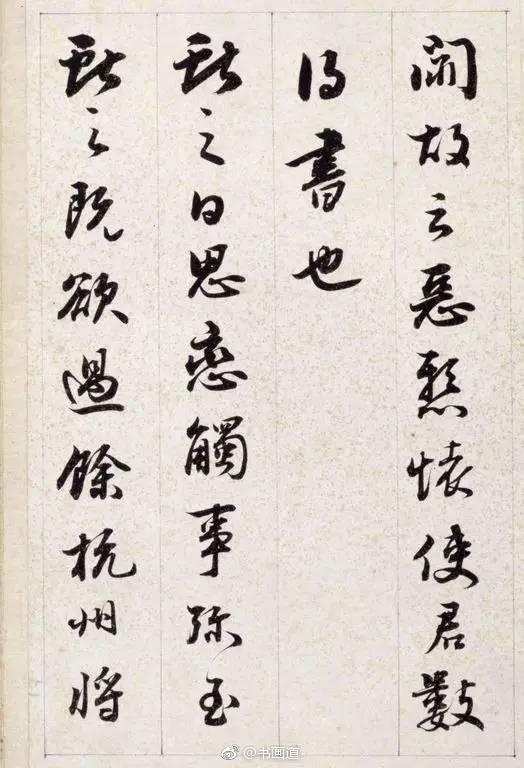 聞故云惡懸懷使君數
得書也
獻之日思戀觸事彌至
獻之既欲過餘杭州將
@书画道